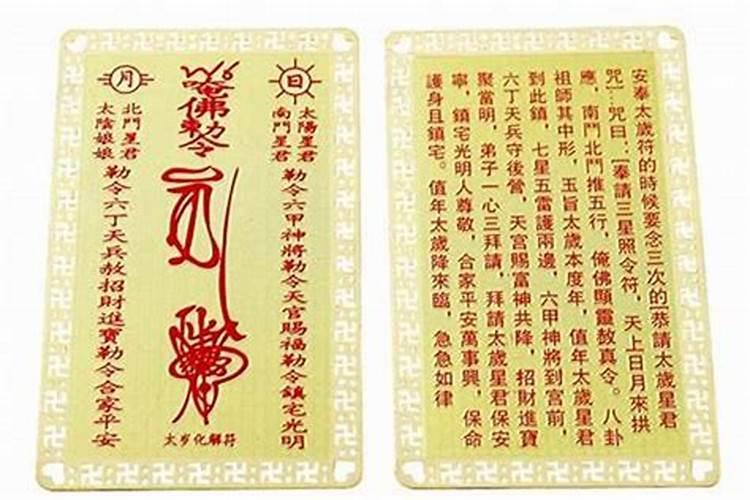 日
太陽星君
南鬥星君
勒令六甲神將勒令天官賜福勒令鎮宅光明
唵佛勅令
太岁化解符
月
北鬥星君
太陰娘娘
勒令六丁天兵赦招財進寶勒令合家平安
安奉太歲符的時候要念三次的[恭請太歲星君
咒]…咒曰：[奉請三星照令符，天上日月來拱
應，南鬥北鬥推五行，俺佛顯靈敖真令。八卦
祖師其中形，玉旨太歲本度年，值年太歲星君
到此鎮，七星五雷護兩邊，六甲神將到宫前，
六丁天兵守後營，天宫賜富神共降，招財進寶
聚當明，弟子一心三拜請，拜請太歲星君保安
寧，鎮宅光明人尊敬，合家平安萬事興，保命
護身且鎮宅。值年太歲降來臨，急急如律